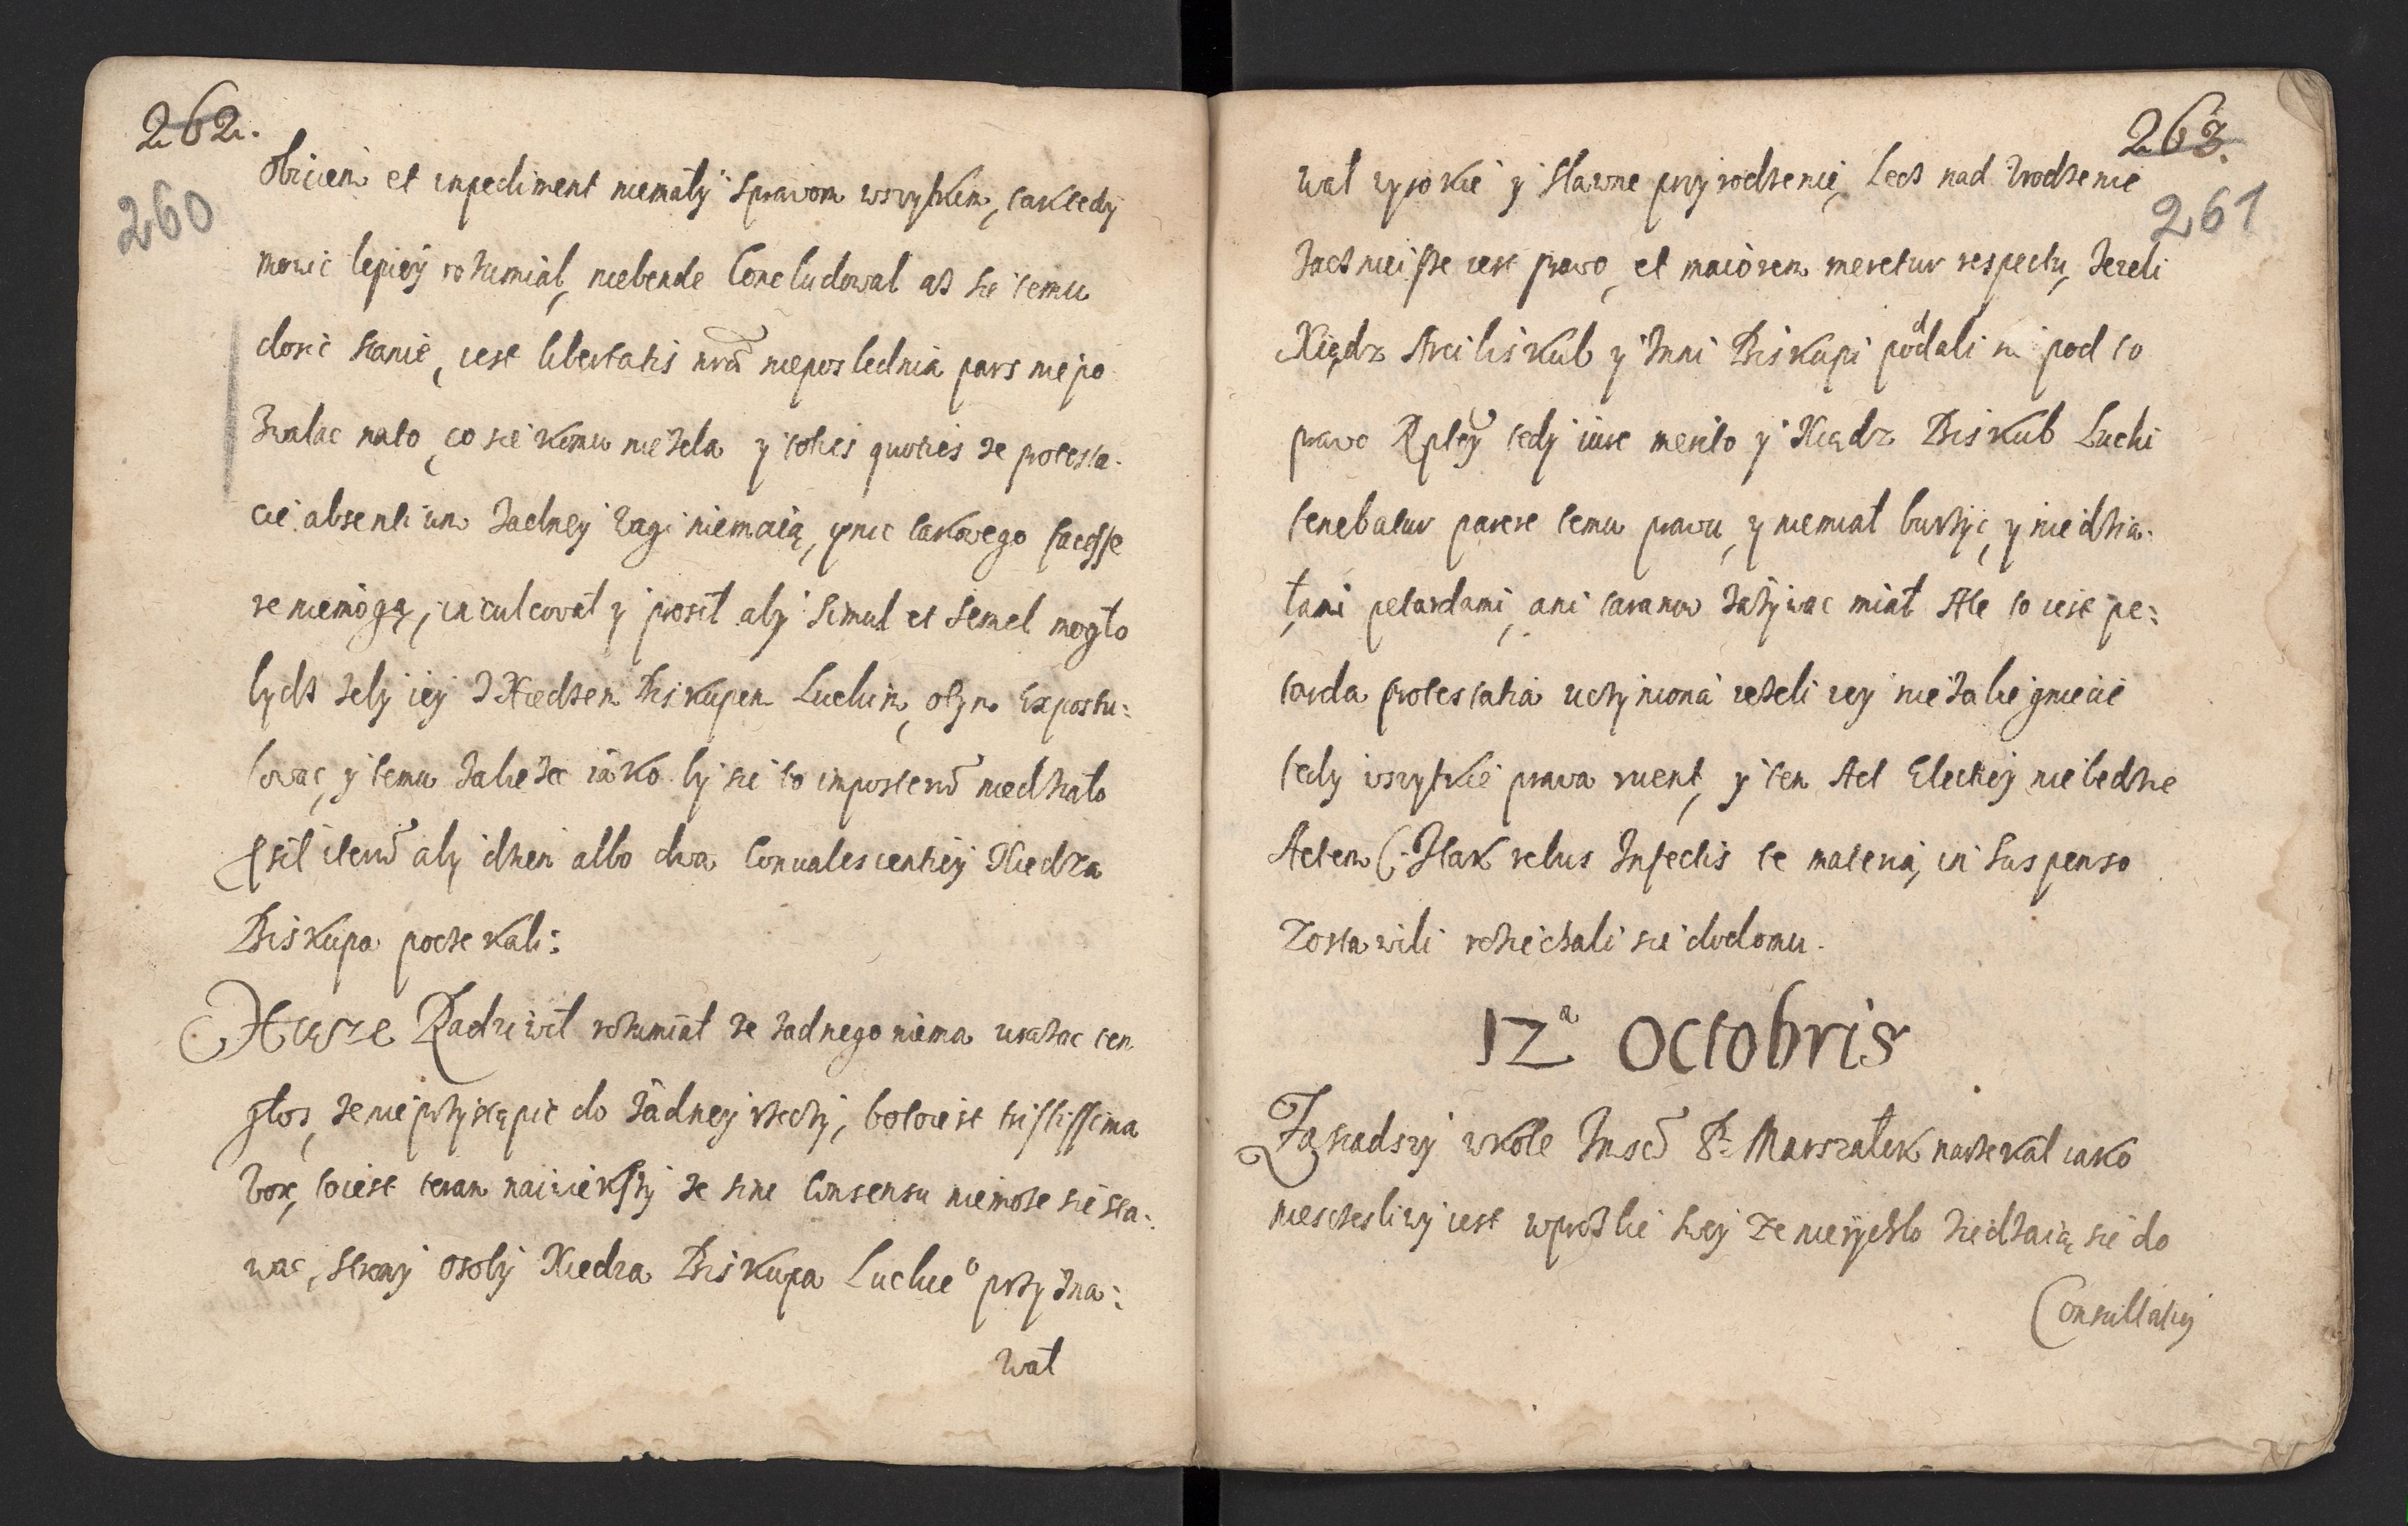 262.
260
obicem et inpediment niemały sprawom wszytkim, tak tedy
mowic lepiey rozumiał, niebende Concludował asz sie temu
dosic stanie, iest libertatis nrae nieposlednia pars niepo
zwalac nato, co sie komu niezda y toties quoties ze protesta-
cie absentium zadney wagi niemaią, ynic takowego facesse
re niemogą, inculcował y prosił aby simul et semel mogło
bydz zeby iey z Xiedzem Biskupem Luckim, otym Expostu:
lowac, y temu zabiezec iako by sie to imposterum niedziało
Psił iterum aby dzien albo dwa Convalescentiey Xiedza
Biskupa poczekali:
Xiąze Radziwił rozumiał ze zadnego niema urazac ten
głos, ze nieprzystąpic do zadney rzeczy, boto iest tristissima
vox, toiest taran naiwiekszy ze sine Consensu niemoze sie sta:
wac, strony osoby Xiedza Biskupa Luckieo przyzna:
wał
263.
261
wał wysokie y sławne przyrodzenie, Lecz nad urodzenie
zacznieisze iest prawo, et maiorem meretur respectu, Jezeli
Xiądz Arcibiskub y Inni Biskupi poddali sie pod to
prawo Rptey tedy iuze merito y Xiądz Biskub Lucki
tenebatur parere temu prawu, y niemiał burzyc, y niedzia-
łami petardami, ani taranow zazywac miał Ale to iest pe:
tarda protestatia uczyniona iezeli iey niezabiegniecie
tedy wszytkie prawa ruent, y ten Act Electiey niebedzie
Actem (: Itak rebus Infectis te materią, in suspenso
zostawili rozieichali sie dodomu.
12a Octobris
Zasiadszy wkole Jmsc P. Marszałek narzekał iako
niesczesliwy iest wprozbie swey ze nierychło schodzaią sie do
Consultatiy